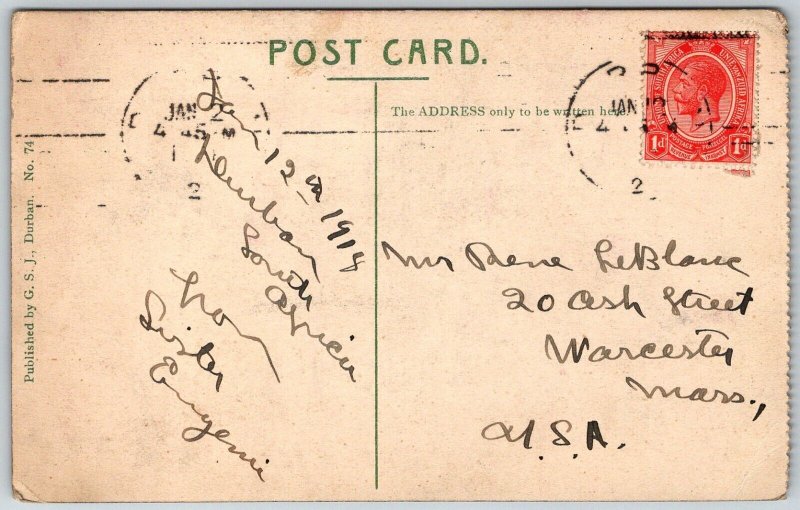 POST CARD.
The ADDRESS only to be written here.
Published by G. S. J., Durban. No. 74
JAN 2
4 45 M
2
JAN 12
2
UNIE VAN ZUID AFRIKA
1d 1d
POSTAGE
REVENUE
Jan 12th 1918
Durban
South
Africa
from
Sister
Eugenie
Mr Rene LeBlanc
20 Ash Street
Warcester
Mass.,
U.S.A.